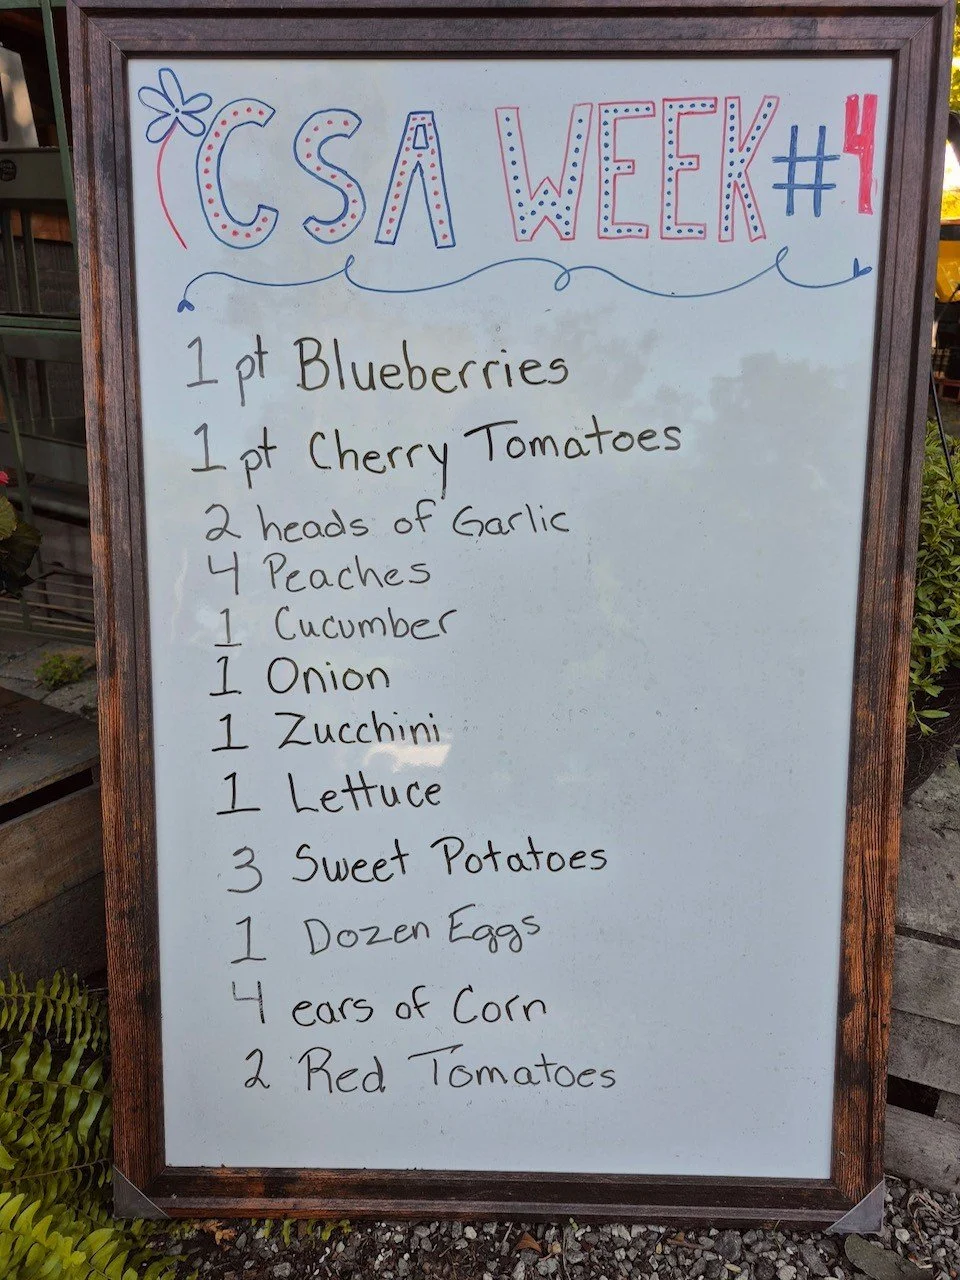 CSA WEEK #4
1 pt Blueberries
1 pt Cherry Tomatoes
2 heads of Garlic
4 Peaches
1 Cucumber
1 Onion
1 Zucchini
1 Lettuce
3 Sweet Potatoes
1 Dozen Eggs
4 ears of Corn
2 Red Tomatoes